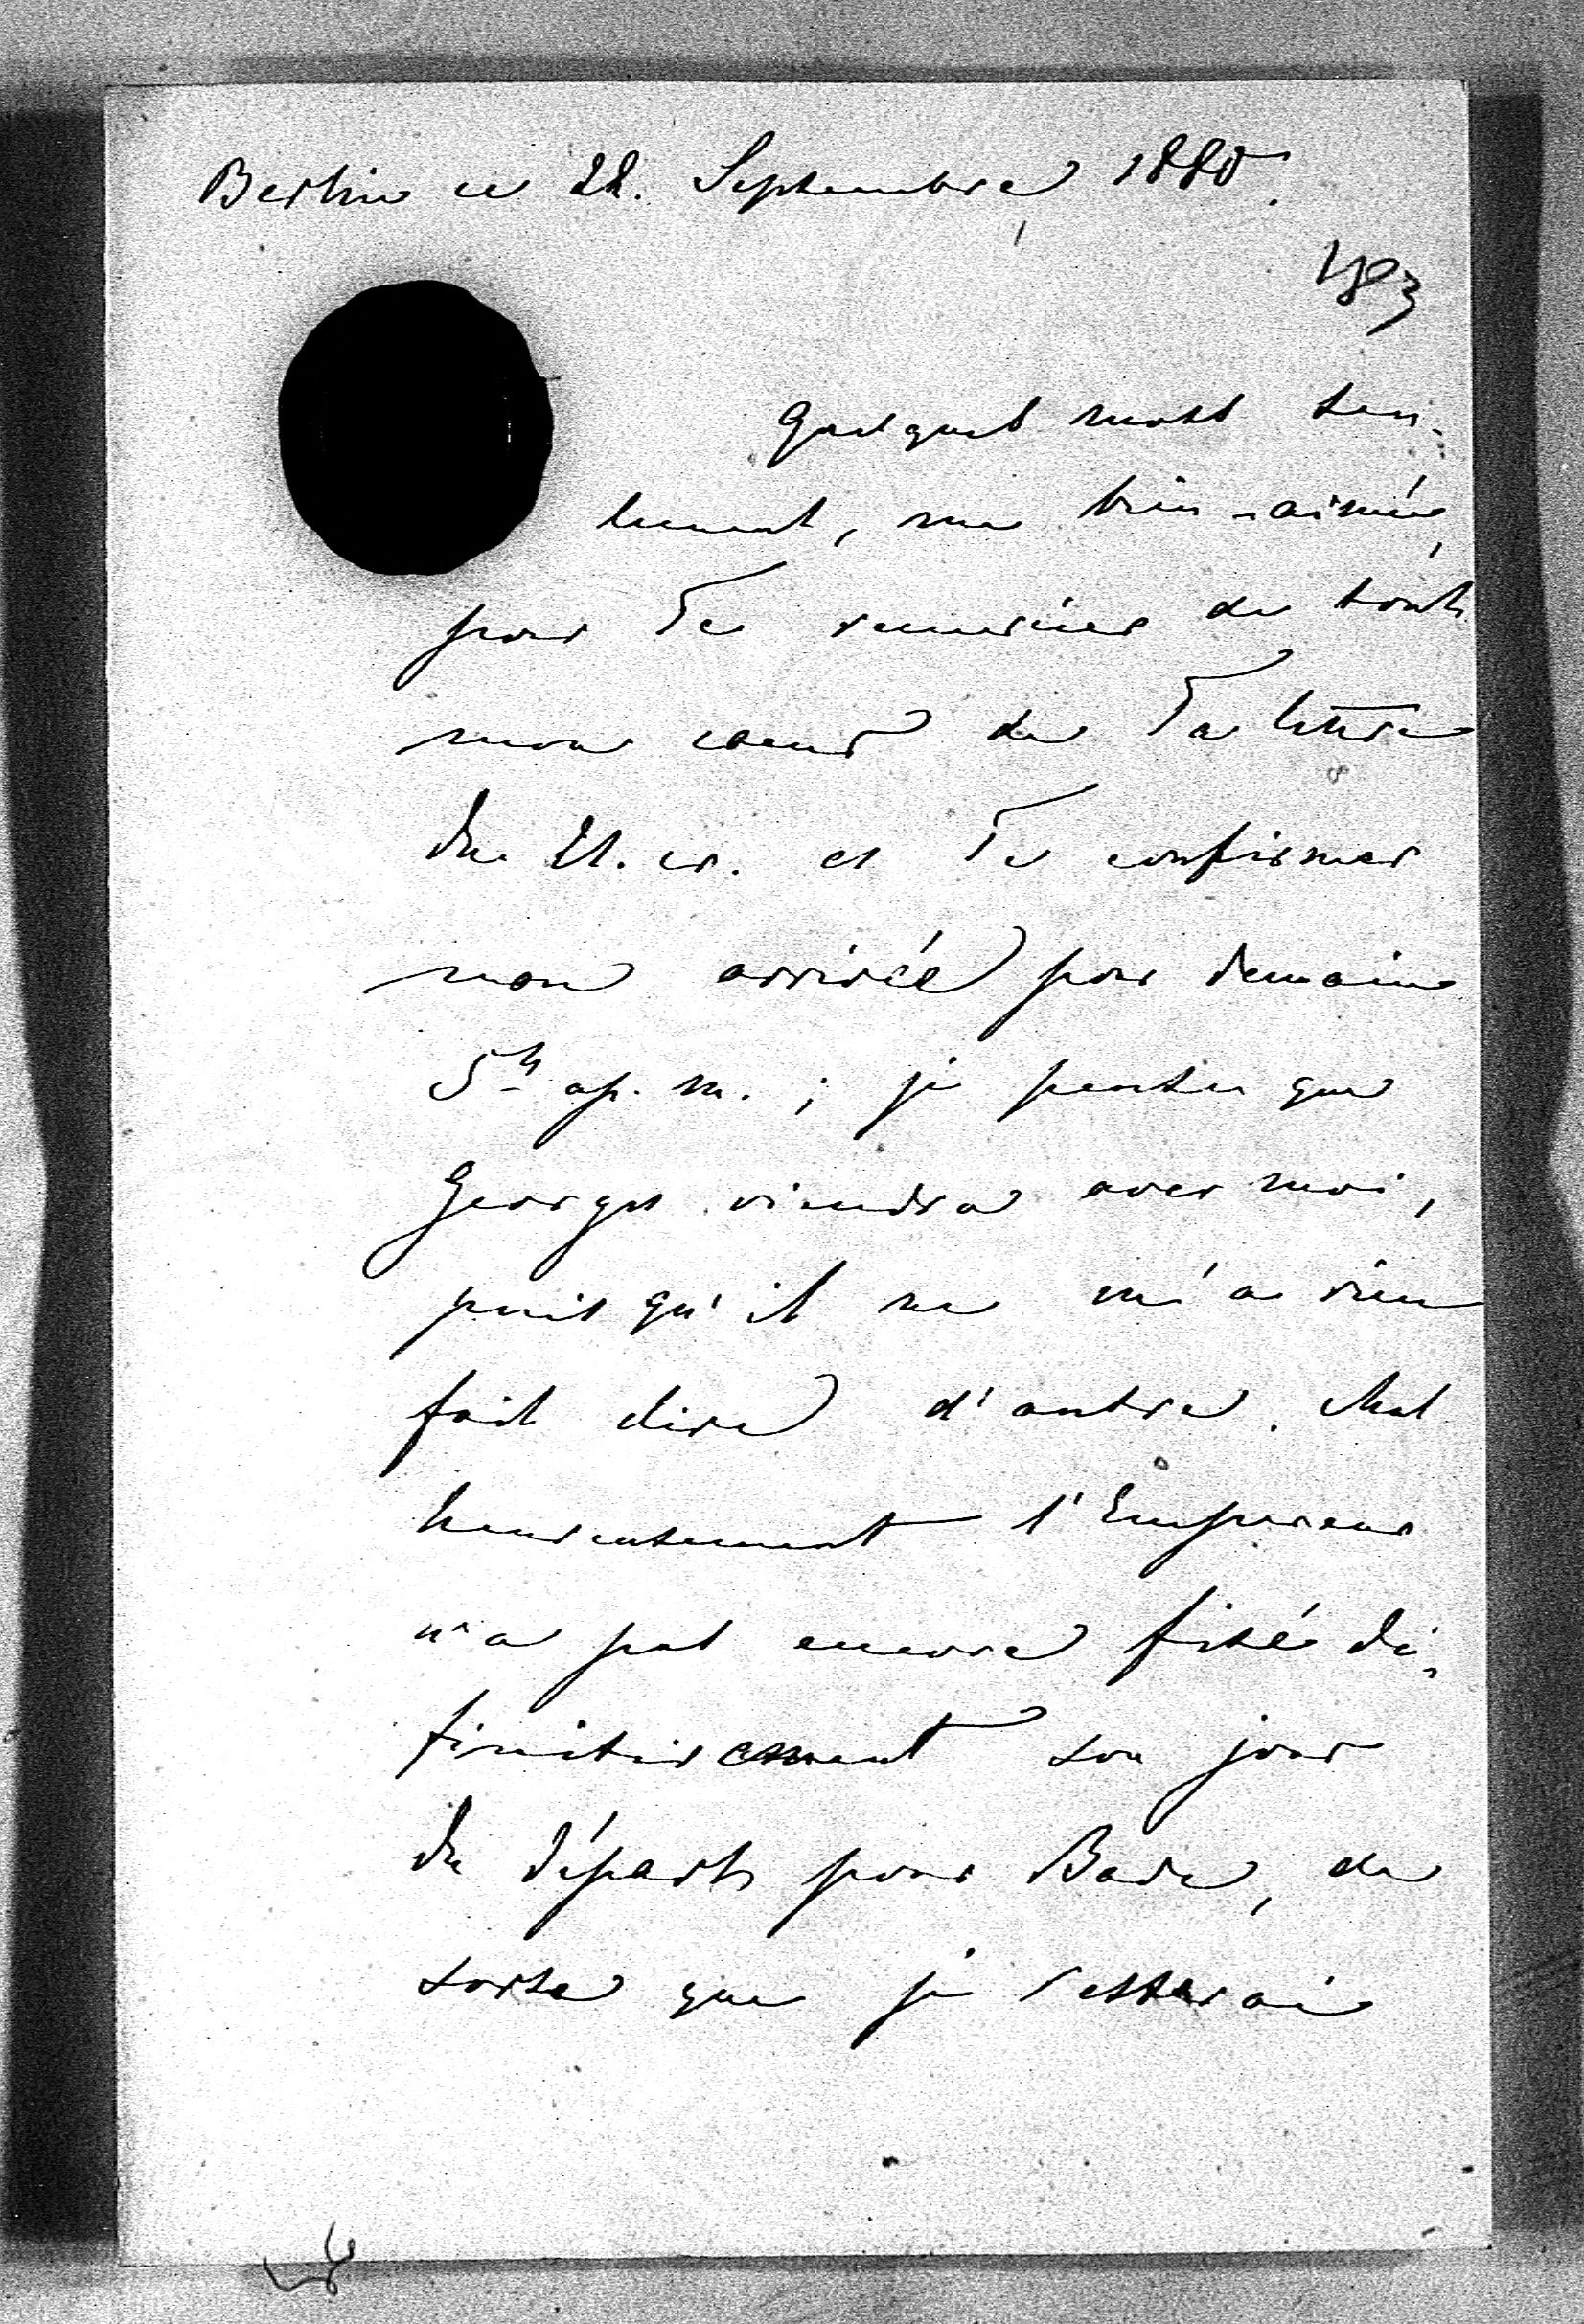 Berlin ce 22. Septembre 1880.
183
Quelques mots seu-
lement, ma bien-aimée,
pour Te remercier de tout
mon coeur de Ta lettre
du 21. cr. et Te confirmer
mon arrivée pour demain
5h ap. m. ; je pense que
Georges viendra avec moi,
puis qu'il ne m'a rien
fait dire d'autre. Mal
heureusement l'Empereur
n'a pas encore fixé dé-
finitivement son jour
de départ pour Bade, de
sorte que je resterai